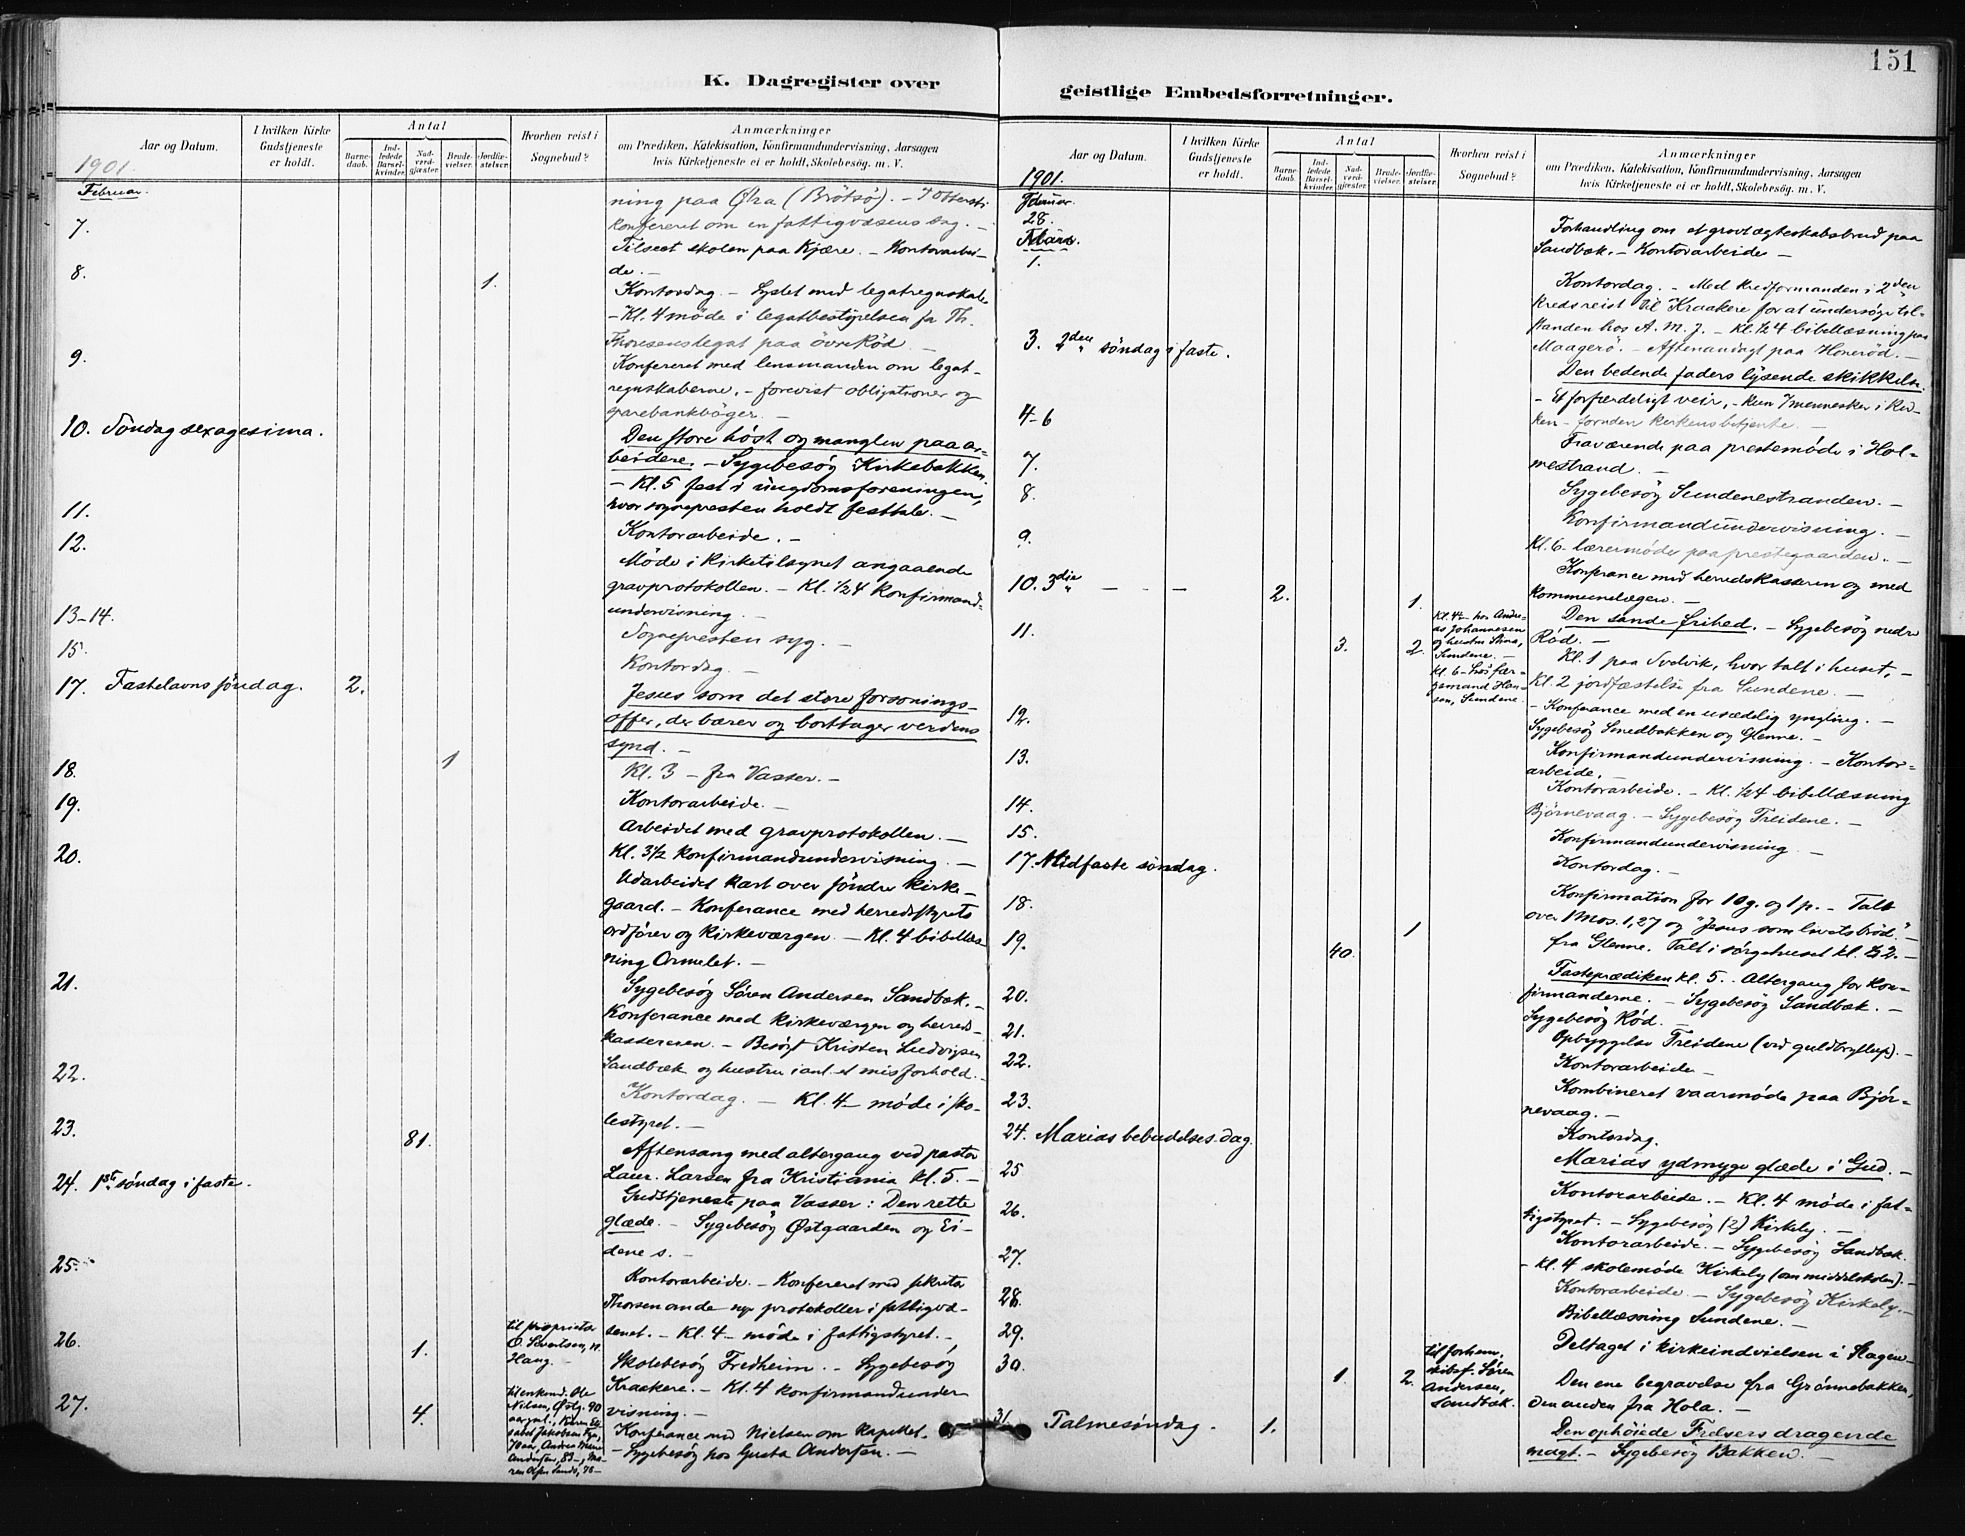 K. Dagregister over
Aar og Datum.
I hvilken Kirke
Gudstjeneste
er holdt.
Antal
Barne-
daab.
Ind-
ledede
Barsel-
kvinder.
Nad-
verd-
gjæster.
Brude-
vielser.
Jordfæ-
stelser.
Hvorhen reist i
Sognebud?
Anmærkninger
om Prædiken, Katekisation, Konfirmandundervisning, Aarsagen
hvis Kirketjeneste ei er holdt, Skolebesøg. m. V.
1901.
Februar.
ning paa Øra (Brötsö). –
konfereret om en fattigvæsens sag. –
7.
Tilseet skolen paa Kjære. – Kontorarbei-
de. –
8.
1.
Kontordag. – Syslet med legatregnskab.
– Kl. 4 møde i legatbestyrelsen for Th.
Thoresens legat paa övre Röd. –
9.
Konfereret med lensmanden om legat-
regnskaberne, – forevist obligationer og
sparebankbøger. –
10. Søndag sexagesima.
Den store høst og manglen paa ar-
beidere. – Sygebesøg Kirkebakken.
– Kl. 5 fest i ungdomsforeningen,
hvor sognepresten holdt festtale. –
11.
Kontorarbeide. –
12.
Møde i kirketilsynet angaaende
gravprotokollen. – Kl. ½4 konfirmand-
undervisning. –
13–14.
Sognepresten syg. –
15.
Kontordag –
17. Fastelavns søndag.
2.
Jesus som det store forsonings-
offer, der bærer og borttager verdens
synd. –
18.
1
Kl. 3 – fra Vasser. –
19.
Kontorarbeide. –
Arbeidet med gravprotokollen. –
20.
Kl. 3½ konfirmandundervisning. –
Udarbeidet kart over søndre kirke-
gaard. – Konferance med herredsstyrets
ordfører og kirkeværgen. – Kl. 4 bibellæs-
ning Ormelet. –
21.
Sygebesøg Søren Andersen Sandbæk. –
Konferance med kirkeværgen og herreds-
kassereren. – Besøgt Kristen Ludvigsen
Sandbæk og hustru i anl. et misforhold. –
22.
Kontordag. – Kl. 4 – møde i sko-
lestyret. –
23.
81.
Aftensang med altergang ved pastor
Laur. Larsen fra Kristiania kl. 5. –
24. 1ste søndag i faste.
Gudstjeneste paa Vasser: Den rette
glæde. – Sygebesøg Østgaarden og Ei-
dene s. –
25.
Kontorarbeide. – Konfereret med sekretær
Thorsen om de nye protokoller i fattigvæ-
senet. – Kl. 4 – møde i fattigstyret. –
26.
1.
til proprietær
O. Sivertsen, n.
Haug. –
Skolebesøg Fredheim. – Sygebesøg
Kraakere. – Kl. 4 konfirmandunder-
visning. –
27.
4.
til enkem. Ole
Nilsen, Østg. 90
aar gml.,
Konferance med Nielsen om kapellet.
– Sygebesøg hos Gusta Andersen. –
151
geistlige Embedsforretninger.
Aar og Datum.
I hvilken Kirke
Gudstjeneste
er holdt.
Antal
Barne-
daab.
Ind-
ledede
Barsel-
kvinder.
Nad-
verd-
gjæster.
Brude-
vielser.
Jordfæ-
stelser.
Hvorhen reist i
Sognebud?
Anmærkninger
om Prædiken, Katekisation, Konfirmandundervisning, Aarsagen
hvis Kirketjeneste ei er holdt, Skolebesøg. m. V.
1901.
Februar.
28.
Forhandling om et grovt ægteskabsbrud paa
Sandbæk. – Kontorarbeide –
Marts.
1.
Kontordag. – Med kredsformanden i 2den
kreds reist til Kraakere for at undersøge til-
standen hos A. M. J. – Kl. ½4 bibellæsning paa
Maagerö. – Aftenandagt paa Honerød. –
3. 2den søndag i faste.
Den bedende faders lysende skikkelse.
– Et forfærdeligt veir, – kun 7 mennesker i kir-
ken – foruden kirkens betjente. –
4–6
Fraværende paa prestemøde i Hol-
mestrand. –
7.
Sygebesøg Sundenestranden. –
8.
Konfirmandundervisning. –
Kl. 6 – lærermøde paa prestegaarden. –
9.
Konferance med herredskasseren og med
kommunelægen. –
10. 3die – –
2.
1.
Den sande frihed. – Sygebesøg nedre
Röd. –
11.
3.
2.
Kl. 4½ hos Andre-
as Johannesen
og hustru Stina,
Sundene. –
Kl. 6 – hos fær-
gemand Han-
sen, Sundene.
Kl. 1 paa Solvik, hvor talt i huset, –
Kl. 2 jordfæstelse fra Sundene. –
12.
– Konferance med en usædelig yngling. –
Sygebesøg Smedbakken og Glenne. –
13.
Konfirmandundervisning. – Kontor-
arbeide. –
14.
Kontorarbeide. – Kl. ½4 bibellæsning
Bjørnevaag. – Sygebesøg Treidene. –
15.
Konfirmandundervisning –
Kontordag. –
17. Midfaste søndag.
Konfirmation for 10 g. og 1 p. – Talt
over 1 Mos. 1,27 og "Jesus som livets brød." –
18.
1
fra Glenne. Talt i sørgehuset kl. 12. –
19.
40.
Fasteprædiken kl. 5. – Altergang for kon-
firmanderne. – Sygebesøg Sandbæk. –
20.
Sygebesøg Rød. –
21.
Opbyggelse Treidene (ved guldbryllup). –
22.
Kontorarbeide –
Kombineret vaarmøde paa Bjør-
nevaag. –
23.
Kontordag.
24. Marias bebudelses dag.
Marias ydmyge glæde i Gud. –
25
Kontorarbeide. – Kl. 4 møde i fat-
tigstyret. – Sygebesøg (2) Kirkely. –
26.
Kontorarbeide. – Sygebesøg Sandbæk.
– Kl. 4 skolemøde Kirkely (om middelskolen). –
27.
Kontorarbeide – Sygebesøg Kirkely. –
28.
Bibellæsning Sundene. –
29.
Deltaget i kirkeindvielsen i Slagen –
30.
1.
2.
til forhen.
skibsf. Søren
Andersen,
Sandbæk.
Den ene begravelse fra Grønnebakken,
den anden fra Hola. –
31. Palmesøndag.
1.
Den ophøiede Frelsers dragende
magt. – Sygebesøg Bakken. –